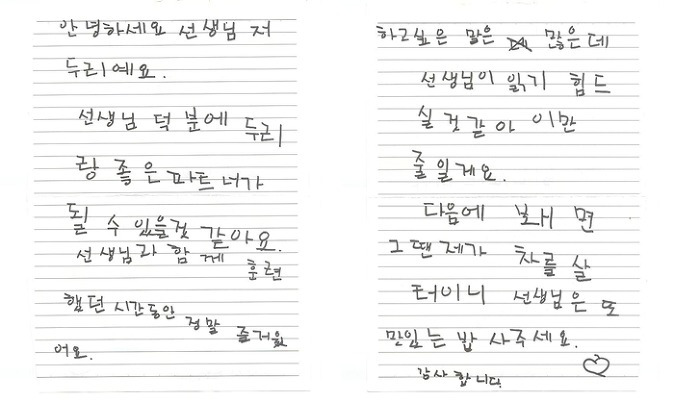 안녕하세요 선생님 저
두리예요.
선생님 덕 분에 두리
랑 좋은 파트너가
될 수 있을것 같아요.
선생님과 함께 훈련
했던 시간동안 정말 즐거웠
어요.
하고싶은 말은 많은데
선생님이 읽기 힘드
실 것 같아 이만
줄일게요.
다음에 보내면
그땐 제가 차를 살
터이니 선생님은 또
맛있는 밥 사주세요.
감사합니다.